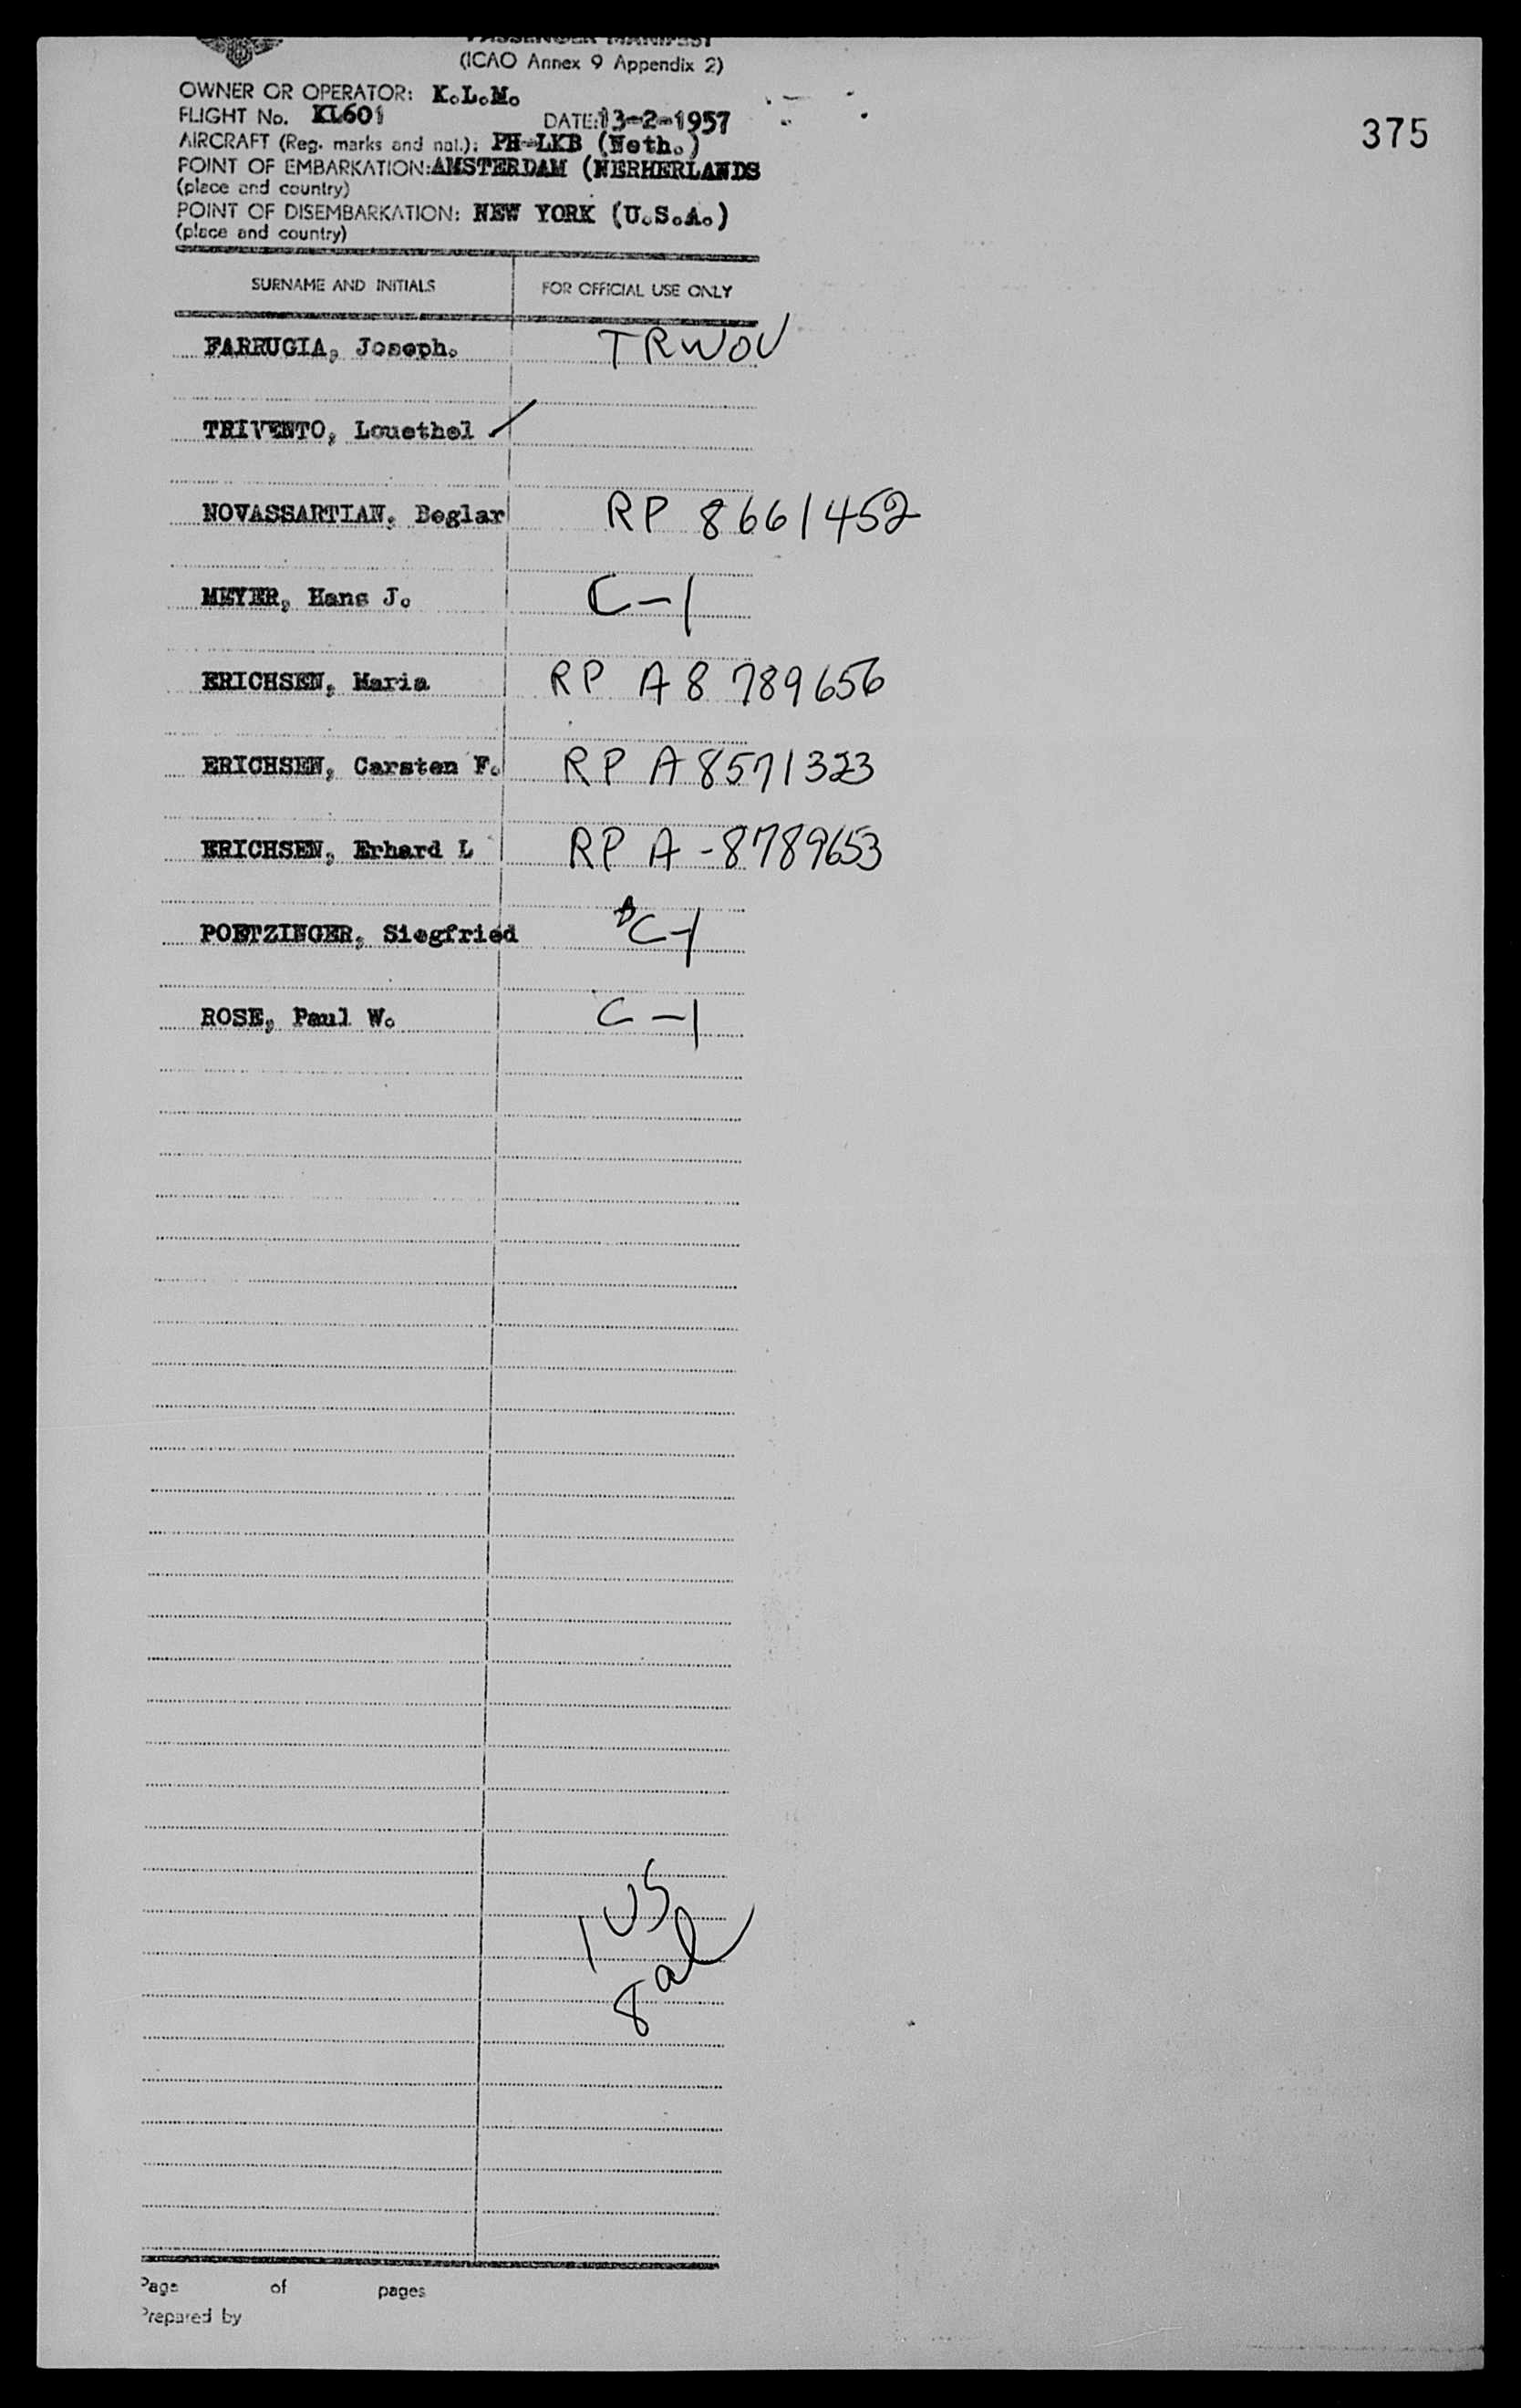 PASSENGER MANIFEST
(ICAO Annex 9 Appendix 2)
375
OWNER OR OPERATOR: K.L.M.
FLIGHT No. KL601 DATE: 13-2-1957
AIRCRAFT (Reg. marks and nat.): PH-LKB (Neth.)
POINT OF EMBARKATION: AMSTERDAM (NERHERLANDS
(place and country)
POINT OF DISEMBARKATION: NEW YORK (U.S.A.)
(place and country)
SURNAME AND INITIALS FOR OFFICIAL USE ONLY
FARRUGIA, Joseph. TRWOV
TRIVENTO, Louethel
NOVASSARTIAN, Beglar RP 8661452
MEYER, Hans J. C-1
ERICHSEN, Maria RP A8 789656
ERICHSEN, Carsten F. RP A8571323
ERICHSEN, Erhard L RP A-8789653
POETZINGER, Siegfried C-1
ROSE, Paul W. C-1
1 US
8 al
Page of pages
Prepared by